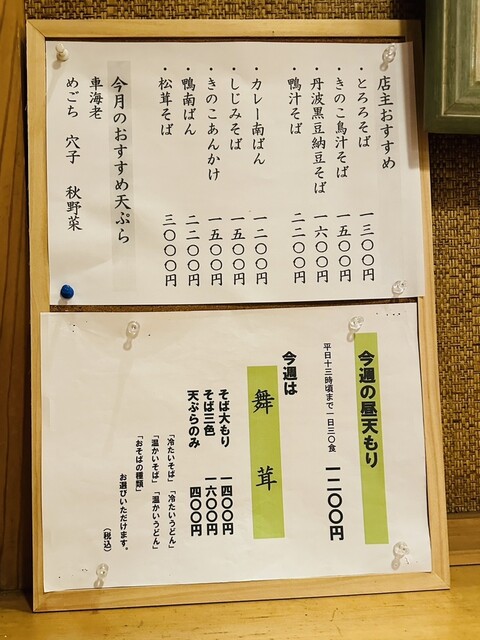 店主おすすめ
・とろろそば 一三〇〇円
・きのこ鳥汁そば 一五〇〇円
・丹波黒豆納豆そば 一六〇〇円
・鴨汁そば 二二〇〇円
・カレー南ばん 一二〇〇円
・しじみそば 一五〇〇円
・きのこあんかけ 一五〇〇円
・鴨南ばん 二二〇〇円
・松茸そば 三〇〇〇円
今月のおすすめ天ぷら
車海老
めごち 穴子 秋野菜
今週の昼天もり
平日十三時頃まで一日三〇食 一二〇〇円
今週は
舞茸
そば大もり 一四〇〇円
そば三色 一六〇〇円
天ぷらのみ 四〇〇円
「冷たいそば」「冷たいうどん」
「温かいそば」「温かいうどん」
「おそばの種類」
お選びいただけます。
（税込）